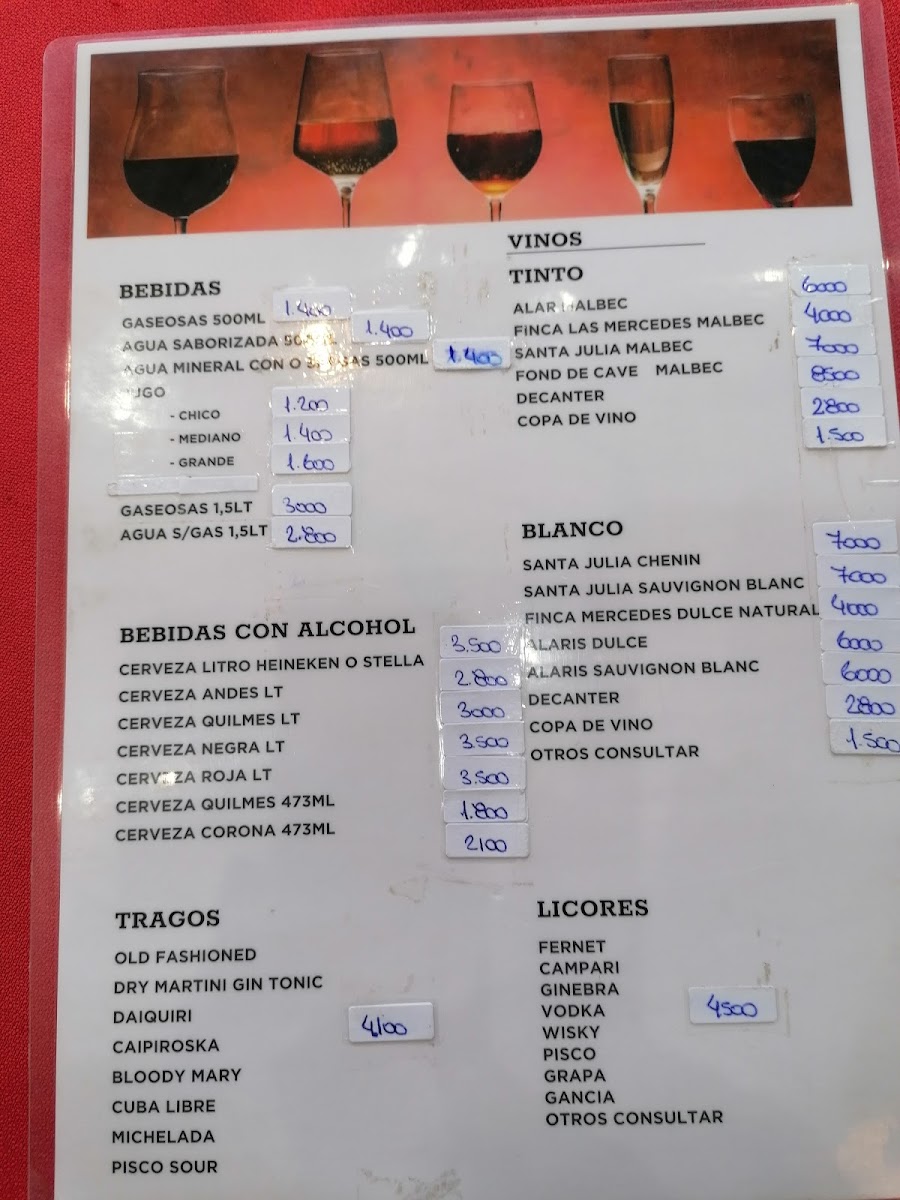 BEBIDAS
GASEOSAS 500ML 1.400
AGUA SABORIZADA 1.400
AGUA MINERAL CON O GAS 500ML 1.400
- CHICO 1.200
- MEDIANO 1.400
- GRANDE 1.600
GASEOSAS 1,5LT 3000
AGUA S/GAS 1,5LT 2.800
BEBIDAS CON ALCOHOL
CERVEZA LITRO HEINEKEN O STELLA 3.500
CERVEZA ANDES LT 2.800
CERVEZA QUILMES LT 3000
CERVEZA NEGRA LT 3.500
CERVEZA ROJA LT 3.500
CERVEZA QUILMES 473ML 1.800
CERVEZA CORONA 473ML 2100
TRAGOS
OLD FASHIONED
DRY MARTINI GIN TONIC
DAIQUIRI 4100
CAIPIROSKA
BLOODY MARY
CUBA LIBRE
MICHELADA
PISCO SOUR
VINOS
TINTO
ALAR MALBEC 6000
FINCA LAS MERCEDES MALBEC 4000
SANTA JULIA MALBEC 7000
FOND DE CAVE MALBEC 8500
DECANTER 2800
COPA DE VINO 1.500
BLANCO
SANTA JULIA CHENIN 7000
SANTA JULIA SAUVIGNON BLANC 7000
FINCA MERCEDES DULCE NATURAL 4000
ALARIS DULCE 6000
ALARIS SAUVIGNON BLANC 6000
DECANTER 2800
COPA DE VINO 1.500
OTROS CONSULTAR
LICORES
FERNET
CAMPARI
GINEBRA
VODKA 4500
WISKY
PISCO
GRAPA
GANCIA
OTROS CONSULTAR